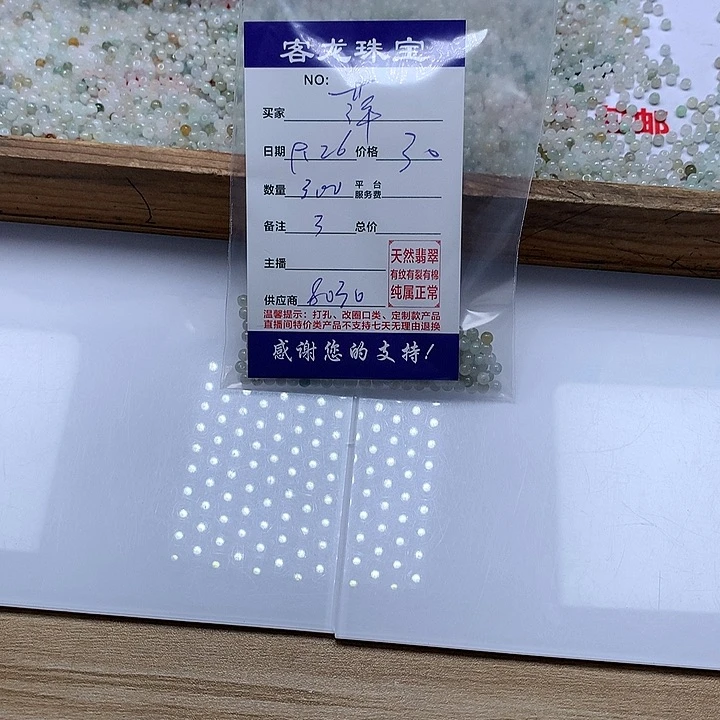 客龙珠宝
NO:
买家 萍
日期 9.26 价格 30
数量 300 平台服务费
备注 3 总价
主播
天然翡翠
有纹有裂有棉
纯属正常
供应商 8030
温馨提示：打孔、改圈口类、定制款产品
直播间特价类产品不支持七天无理由退换
感谢您的支持！